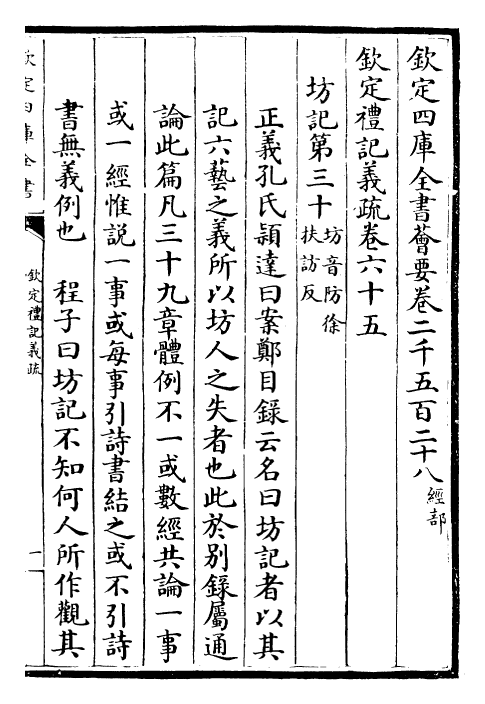 欽定四庫全書薈要卷二千五百二十八 經部
欽定禮記義疏卷六十五
坊記第三十 坊音防徐扶訪反
正義孔氏穎達曰案鄭目錄云名曰坊記者以其
記六藝之義所以坊人之失者也此於別錄屬通
論此篇凡三十九章體例不一或數經共論一事
或一經惟說一事或每事引詩書結之或不引詩
書無義例也 程子曰坊記不知何人所作觀其
欽定四庫全書
欽定禮記義疏
一